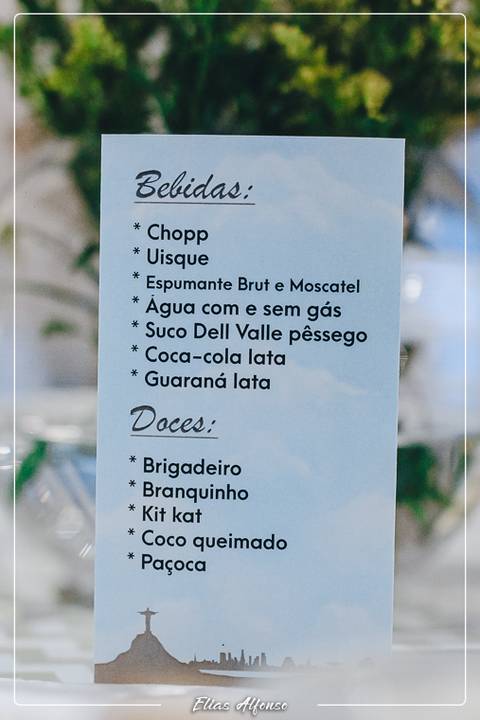 Bebidas:
* Chopp
* Uisque
* Espumante Brut e Moscatel
* Água com e sem gás
* Suco Dell Valle pêssego
* Coca-cola lata
* Guaraná lata
Doces:
* Brigadeiro
* Branquinho
* Kit kat
* Coco queimado
* Paçoca
Elias Alfonso